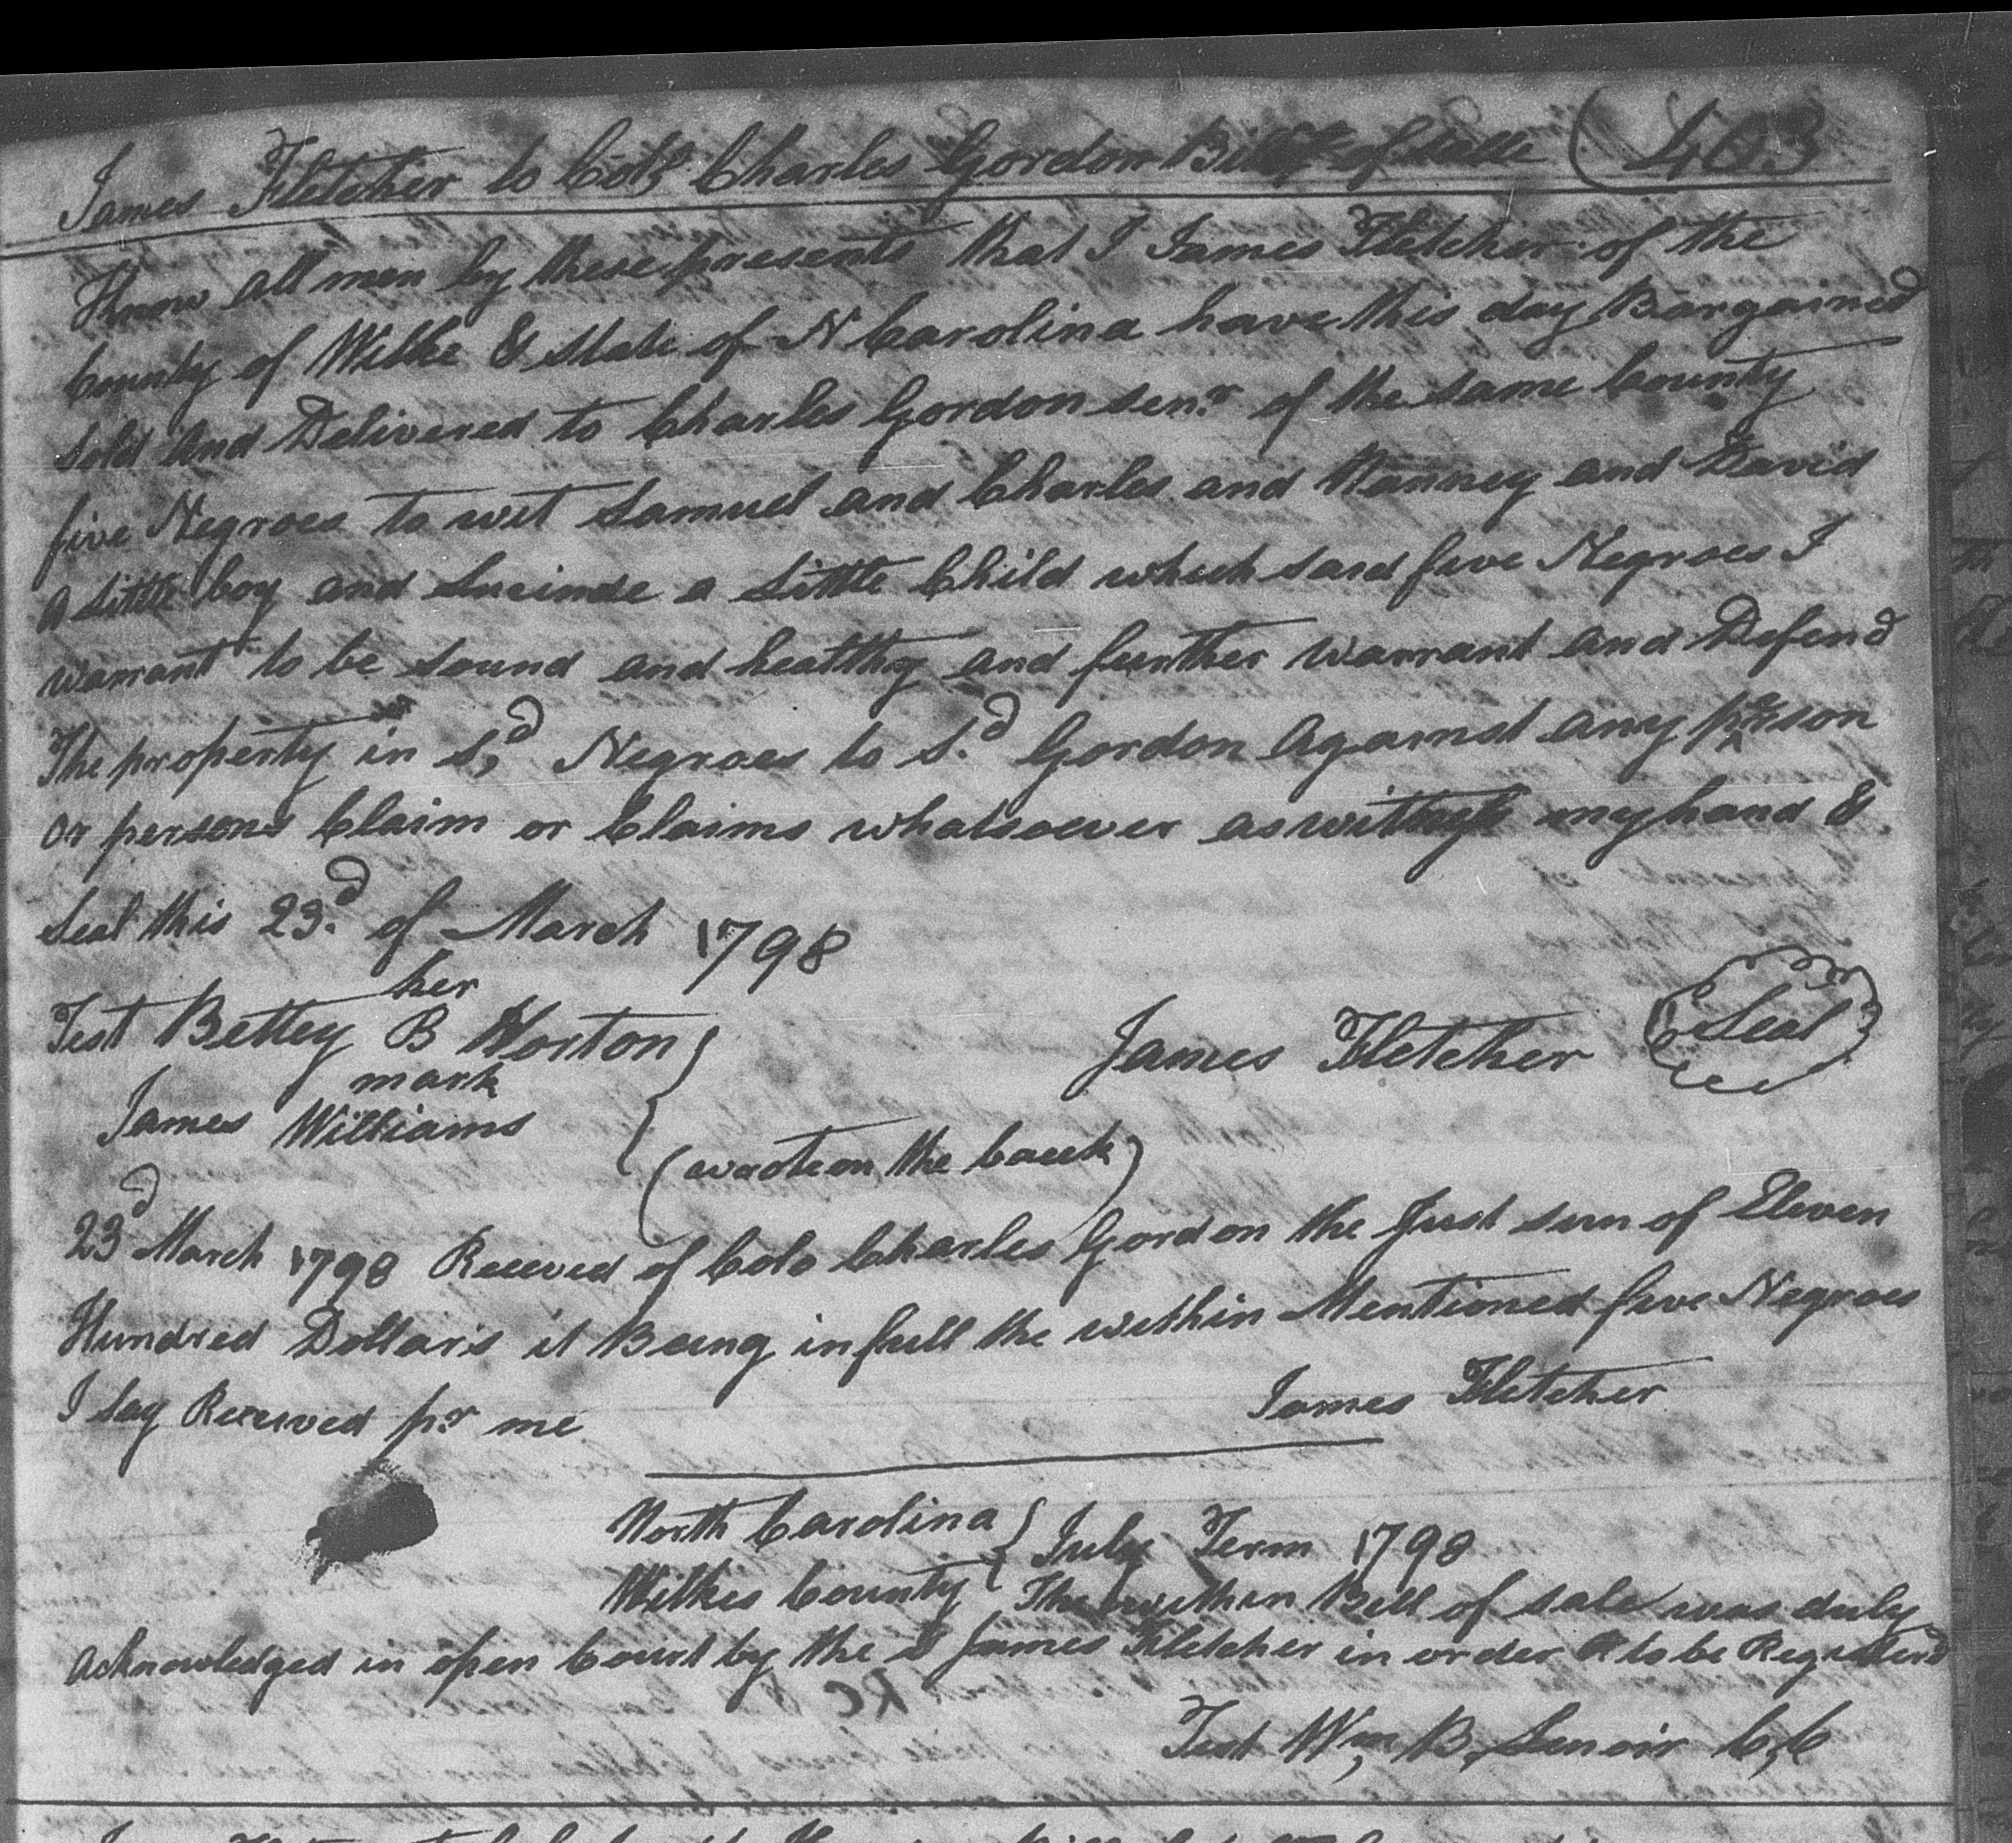 James Fletcher to Colo Charles Gordon Bill of Salle (403
Know all men by these presents that I James Fletcher of the
County of Wilke & State of N Carolina have this day Bargained
Sold and Delivered to Charles Gordon Senr of the same County
five Negroes to wit Samuel and Charles and Nanney and David
a Little boy and Lucinde a Little Child which said five Negroes I
warrant to be sound and healthy and further warrant and Defend
The property in S,d Negroes to S.d Gordon Against any person
or persons Claim or Claims whatsoever as witness my hand &
Seal this 23.d of March 1798
her
Test Bettey B Horton
mark
James Fletcher Seal
James Williams
(wrote on the back)
23d March 1798 Received of Colo Charles Gordon the Just sum of Eleven
Hundred Dollars it Being in full the within Mentioned five Negroes
I say Received pr me
James Fletcher
North Carolina } July Term 1798
Wilkes County The within Bill of sale was duly
Acknowledged in open Court by the Sd James Fletcher in order to be Registerd
Test Wm, B, Lenoir C,C